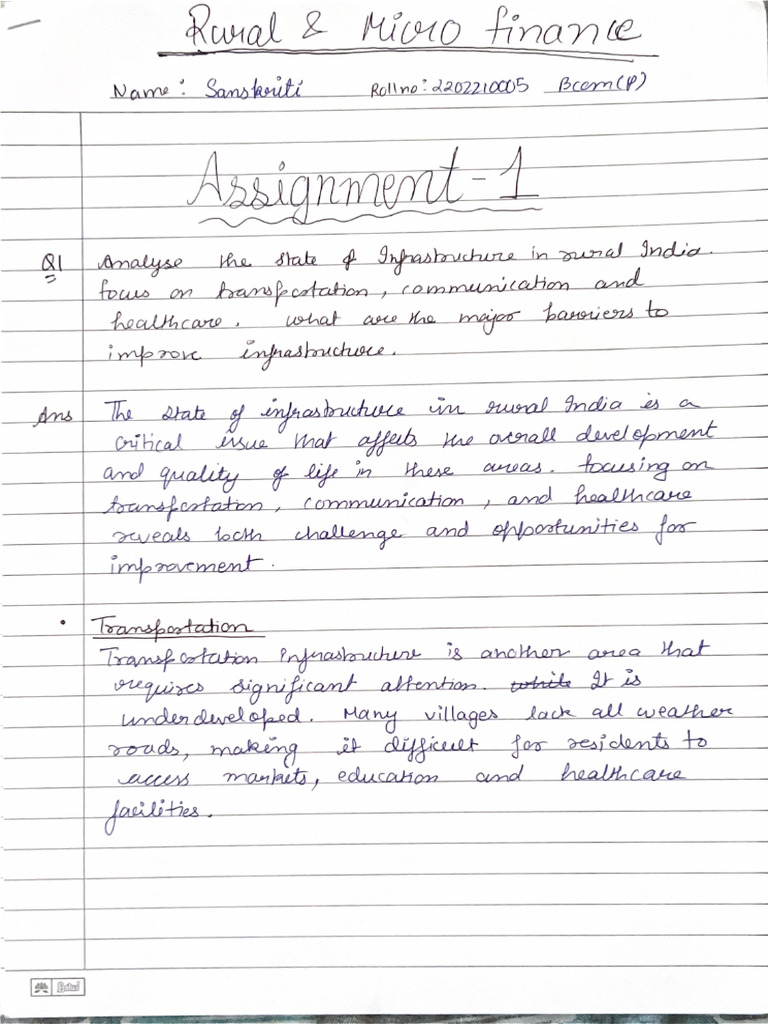 Rural & Micro finance
Name: Sanskriti Roll no: 2202210005 Bcom(P)
Assignment-1
Q1 Analyse the state of Infrastructure in rural India.
focus on transportation, communication and
healthcare. what are the major barriers to
improve infrastructure.
Ans The state of infrastructure in rural India is a
critical issue that affects the overall development
and quality of life in these areas. focusing on
transportation, communication, and healthcare
reveals both challenge and opportunities for
improvement.
• Transportation
Transportation Infrastructure is another area that
requires significant attention. while It is
underdeveloped. Many villages lack all weather
roads, making it difficult for residents to
access markets, education and healthcare
facilities.